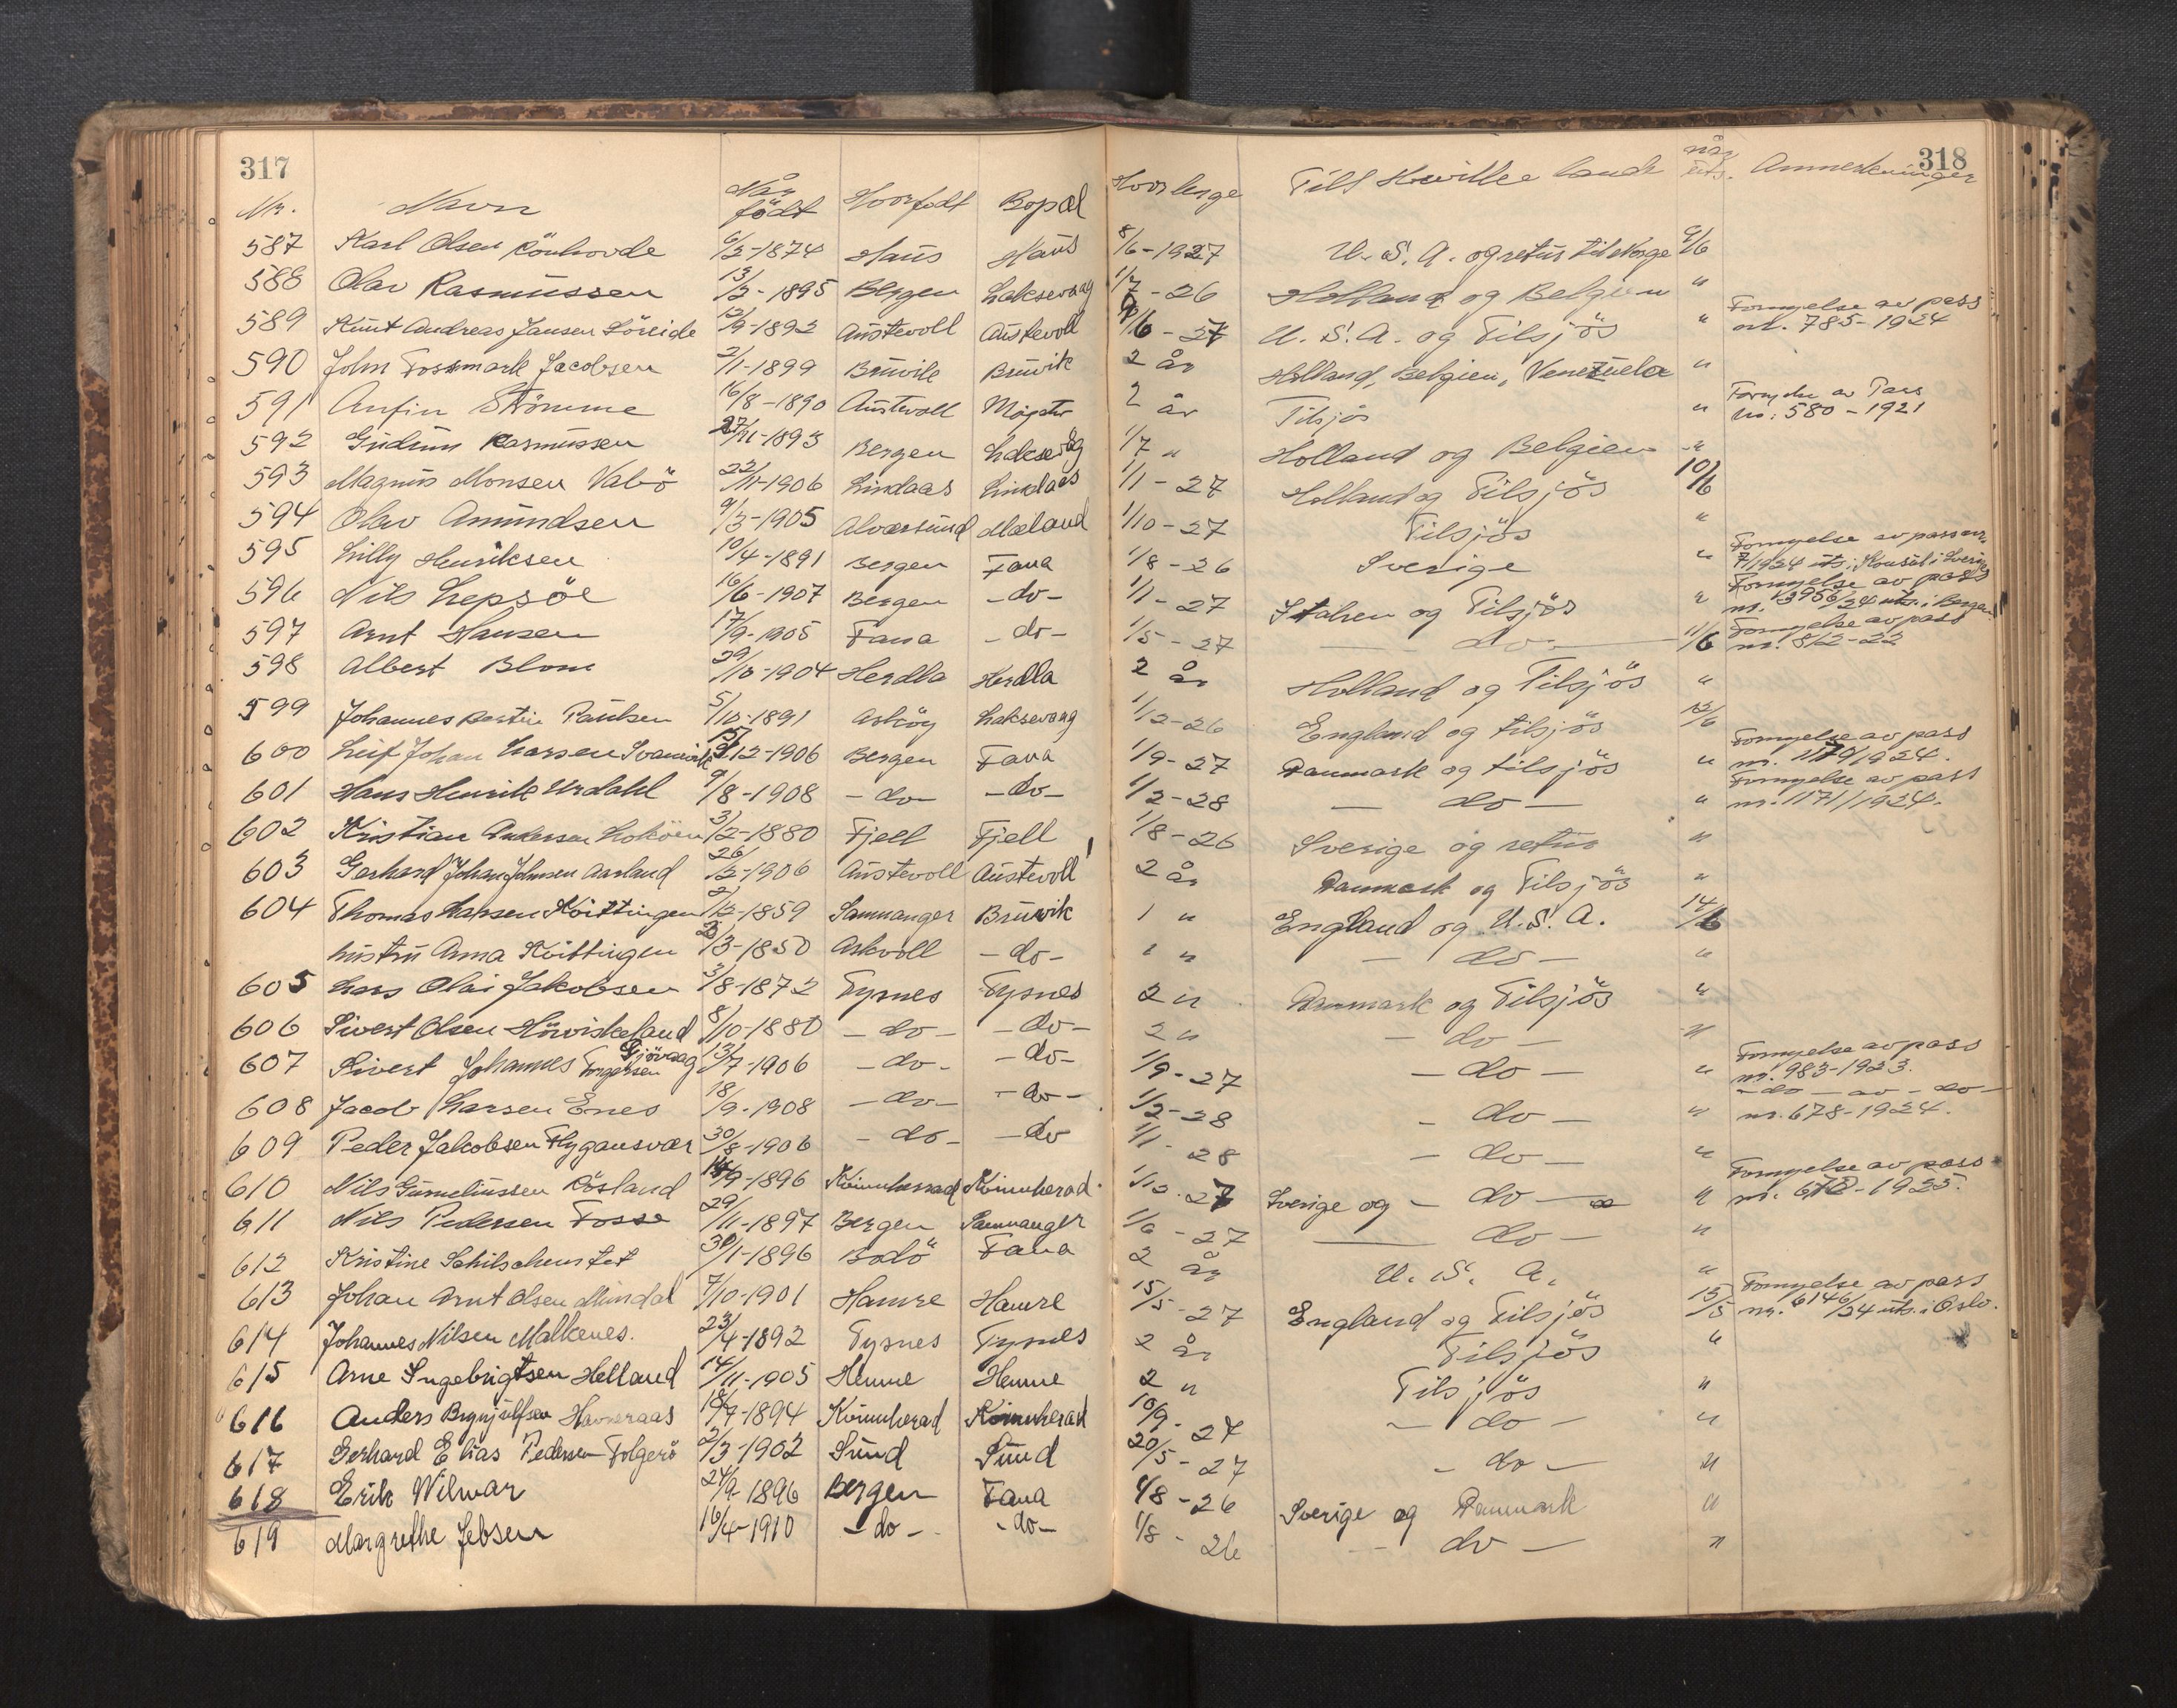 317
318
Nr. Navn Når födt Hvor födt Bopæl Hvor lenge Till Hvilke land når uts. Anmerkninger
587 Karl Olsen Rönhovde 6/2-1874 Haus Haus 8/6-1927 U.S.A. og retur til Norge 9/6
588 Olav Rasmussen 13/2-1895 Bergen Laksevaag 1/7-26 Holland og Belgien "
589 Knut Andreas Jansen Löreide 12/9-1892 Austevoll Austevoll 9/6-27 U.S.A. og Tilsjös " Fornyelse av pass nr. 785-1924
590 John Fossmark Jacobsen 2/1-1899 Bruvik Bruvik 2 år Holland, Belgien, Venezuela "
591 Anfin Strömme 16/8-1890 Austevoll Møgster 2 år Tilsjös " Fornyelse av Pass No: 580-1921
592 Gudrun Rasmussen 27/11-1893 Bergen Laksevåg 1/7 " Holland og Belgien "
593 Magnus Monsen Valö 22/11-1906 Lindaas Lindaas 1/1-27 Holland og Tilsjös 10/6
594 Olav Amundsen 9/3-1905 Alversund Mæland 1/10-27 Tilsjös "
595 Lilly Henriksen 10/4-1891 Bergen Fana 1/8-26 Sverige " Fornyelse av pass nr. 7/1924 uts. i Konsul i Sverige
596 Nils Lepsöe 16/6-1907 Bergen -do- 1/1-27 Italien og Tilsjös " Fornyelse av pass nr. 3956/24 uts. i Bergen
597 Arnt Hansen 17/9-1905 Fana -do- 1/5-27 -do- 11/6 Fornyelse av pass nr. 812-22
598 Albert Blom 29/10-1904 Herdla Herdla 2 år Holland og Tilsjös "
599 Johannes Martin Paulsen 5/10-1891 Asköy Laksevaag 1/12-26 England og tilsjös 12/6
600 Leif Johan Larsen Svanevik 15/12-1906 Bergen Fana 1/9-27 Danmark og tilsjös " Fornyelse av pass nr. 1170/1924.
601 Hans Henrik Urdahl 9/8-1908 -do- -do- 1/2-28 -do- " Fornyelse av pass nr. 1171/1924.
602 Kristian Andersen Loköen 3/2-1880 Fjell Fjell 1/8-26 Sverige og retur "
603 Gerhard Johan Johnsen Aarland 26/2-1906 Austevoll Austevoll 2 år Danmark og Tilsjös "
604 Thomas Larsen Kvittingen 2/12-1859 Samnanger Bruvik 1 " England og U.S.A. 14/6
hustru Anna Kvittingen 23/3-1850 Askvoll -do- 1 " -do- "
605 Lars Olai Jakobsen 3/8-1872 Tysnes Tysnes 2 " Danmark og Tilsjös "
606 Sivert Olsen Hörviskeland 8/10-1880 -do- -do- 2 " -do- "
607 Sivert Johannes Torgersen Gjövaag 13/7-1906 -do- -do- 1/9-27 -do- " Fornyelse av pass nr. 983-1923.
608 Jacob Larsen Enes 18/9-1908 -do- -do- 1/2-28 -do- " -do- av -do- nr. 678-1924.
609 Peder Jakobsen Flygansvær 30/8-1906 -do- -do 1/1 28 -do- "
610 Nils Gunneliussen Rösland 14/9-1896 Kvinnherad Kvinnherad 1/12-27 Sverige og -do- " Fornyelse av pass nr. 672-1925.
611 Nils Pedersen Fosse 29/11-1897 Bergen Samnanger 1/6-27 -do- "
612 Kristine Schilschenstet 31/1-1896 Bodö Fana 2 år U.S.A. "
613 Johan Arnt Olsen Mundal 7/10-1901 Hamre Hamre 15/5-27 England og Tilsjös 15/5 Fornyelse av pass nr. 6146/24 uts. i Oslo.
614 Johannes Nilsen Malkenes. 23/4-1892 Tysnes Tysnes 2 år Tilsjös "
615 Arne Ingebrigtsen Helland 14/11-1905 Hemne Hemne 2 " Tilsjös "
616 Anders Brynjulfsen Havneraas 18/7-1894 Kvinnherad Kvinnherad 10/9-27 -do- "
617 Gerhard Elias Pedersen Folgerö 2/3-1902 Sund Sund 20/5-27 -do- "
618 Erik Wilwar 24/9-1896 Bergen Fana 1/8-26 Sverige og Danmark "
619 Margrethe Jebsen 16/4-1910 -do- -do- 1/8-26 -do- "